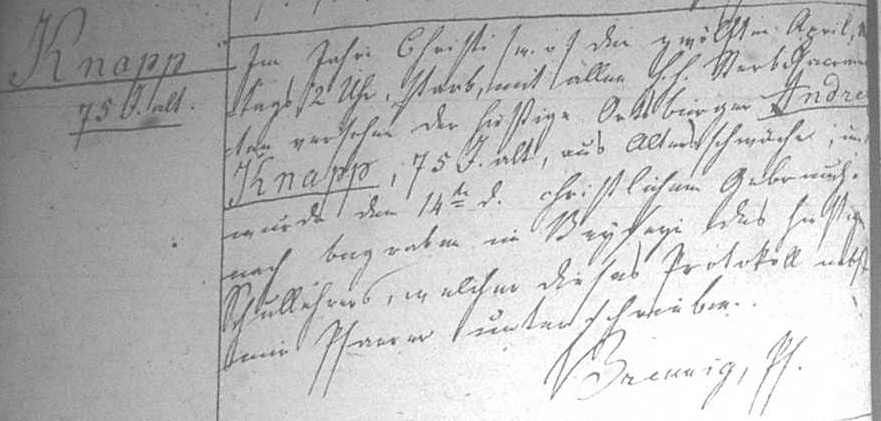 Knapp
75 J. alt.
Im Jahre Christi w. o. den zwölften April,
tags 2 Uhr, starb, mit allen h.h. Sterbsacramen
ten versehen der hiesige Ortsbürger Andre
Knapp, 75 J. alt, aus Altersschwäche, u
wurde den 14ten d. christlichem Gebrauch
nach begraben in Beyseyn des hiesige
Schullehrers, welcher dieses Protokoll nebst
mir Pfarrer unterschrieben.
Pf.